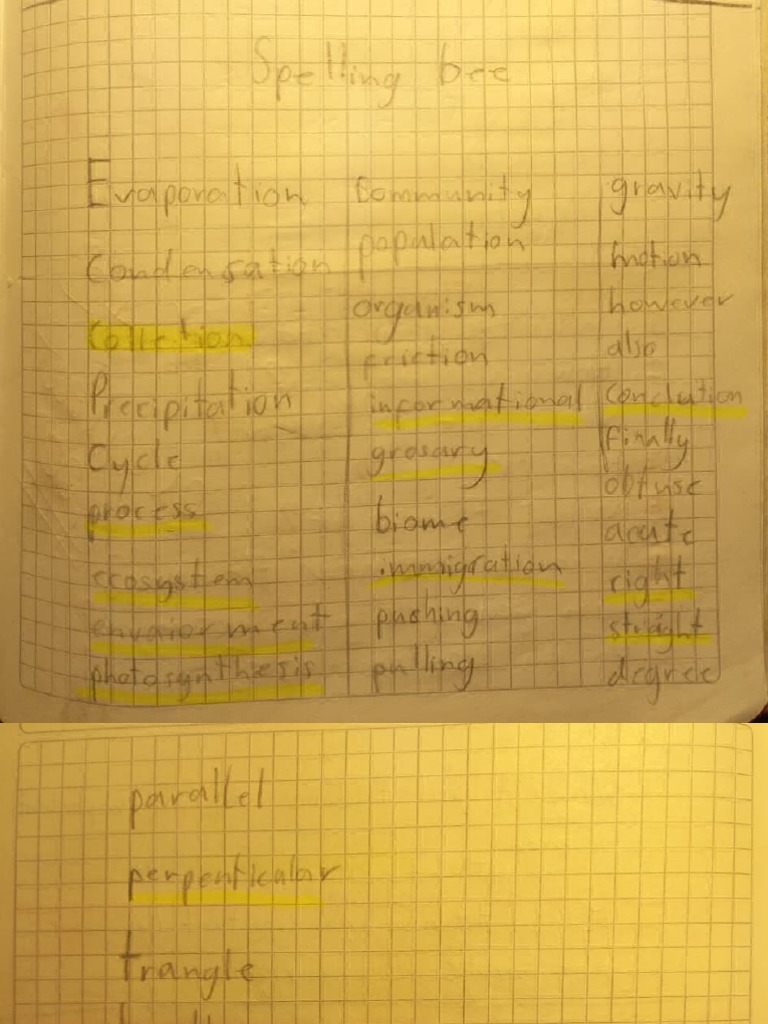 Spelling bee
Evaporation
Condensation
Colletion
Precipitation
Cycle
process
ecosystem
envaiorment
photosynthiesis
Community
population
organism
friction
informational
grosary
biome
immigration
pushing
pulling
gravity
motion
however
also
Conclution
finally
obtuse
acute
right
straight
degree
parallel
perpenticular
triangle